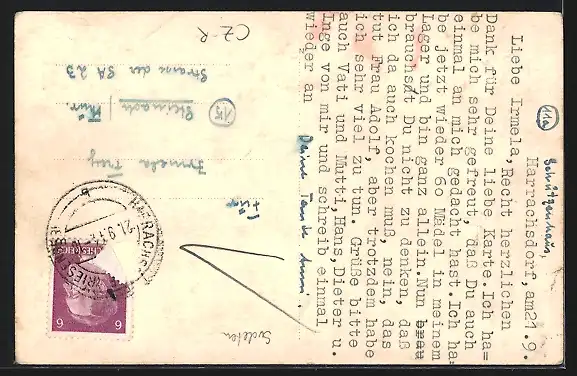 Schützenhaus,
11a
Harrachsdorf, am21.9.
Liebe Irmela, Recht herzlichen
Dank für Deine liebe Karte.Ich ha=
be mich sehr gefreut, daß Du auch
einmal an mich gedacht hast.Ich ha=
be jetzt wieder 60 Mädel in meinem
Lager und bin ganz allein.Nun brau
brauchst Du nicht zu denken, daß
ich da auch kochen muß, nein, das
tut Frau Adolf, aber trotzdem habe
ich sehr viel zu tun. Grüße bitte
auch Vati und Mutti,Hans Dieter u.
Inge von mir und schreib einmal
wieder an
Deine Tante
CZ-R
Irmela
15
Steinach
Thür.
Strasse der SA 23
Sudeten
21.9.
6 6